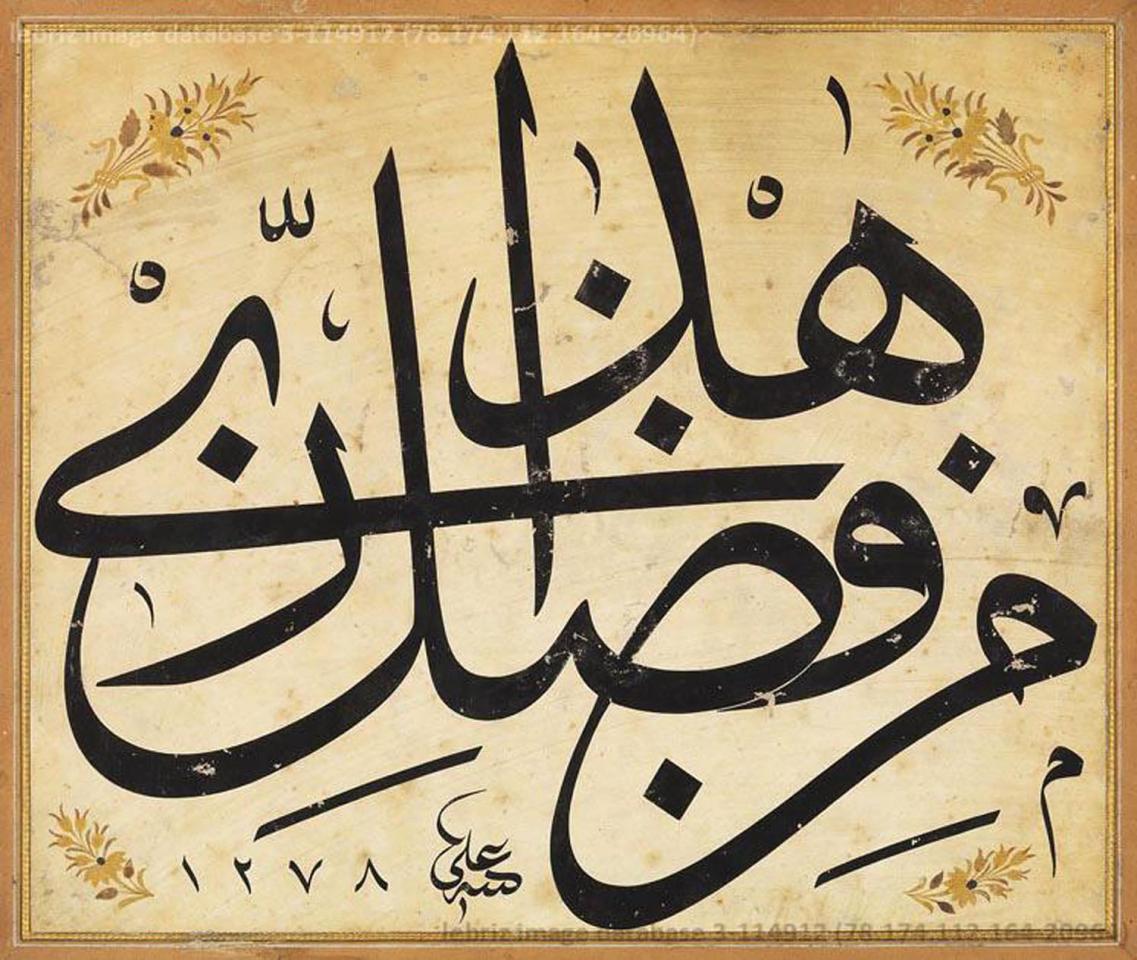 lebriz image database 3-114912 (78.174.112.164-20984)
هٰذَا
مِن فَضْلِ رَبِّي
علي
١٢٧٨
lebriz image database 3-114912 (78.174.112.164-2098